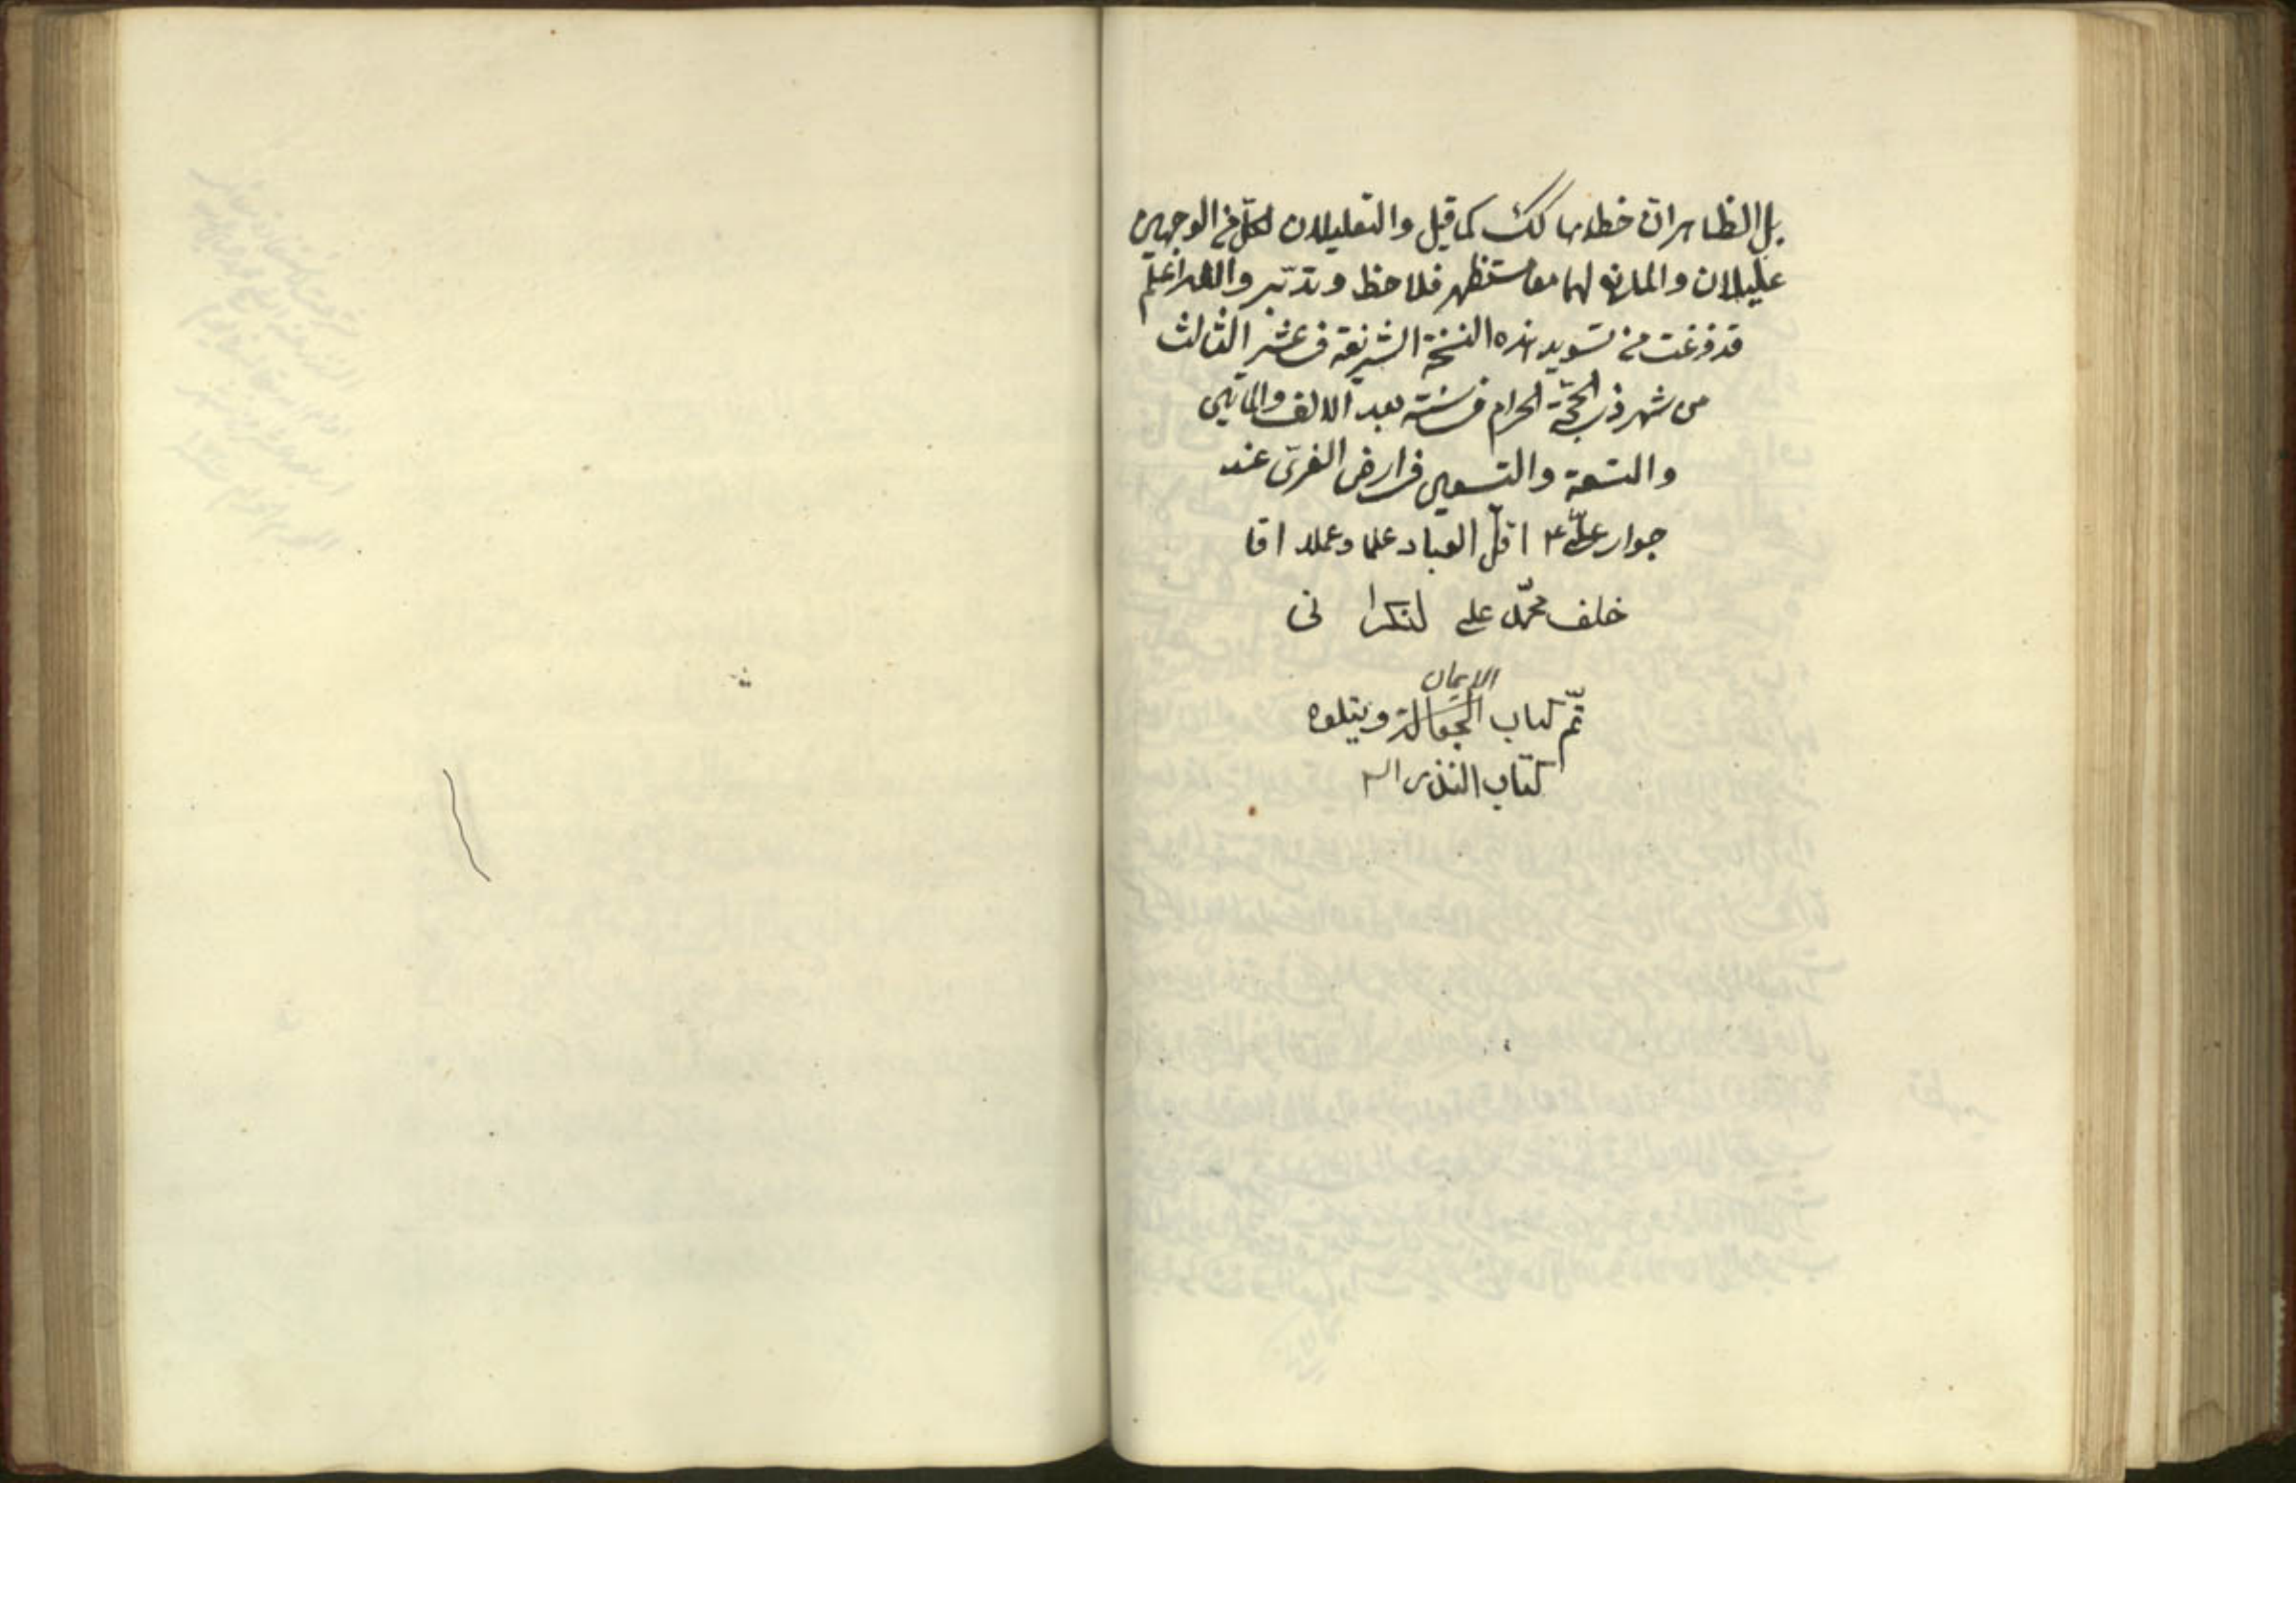 بل الظاهر ان خطاءها كك كما قيل والتعليلان لكلّ من الوجهين
عليلان والمانع لهما مستظهر فلاحظ وتدبّر والله اعلم
قد فرغت من تسويد هذه النسخة الشريفة في عشر الثالث
من شهر ذي الحجّة الحرام في سنة بعد الالف والماتين
والتسعة والتسعين في ارض الغريّ عند
جوار عليّ ع اقلّ العباد علما وعملا اقا
خلف محمّد علي لنكرانى
الايمان
تمّ كتاب الجعالة ويتلوه
كتاب النذر